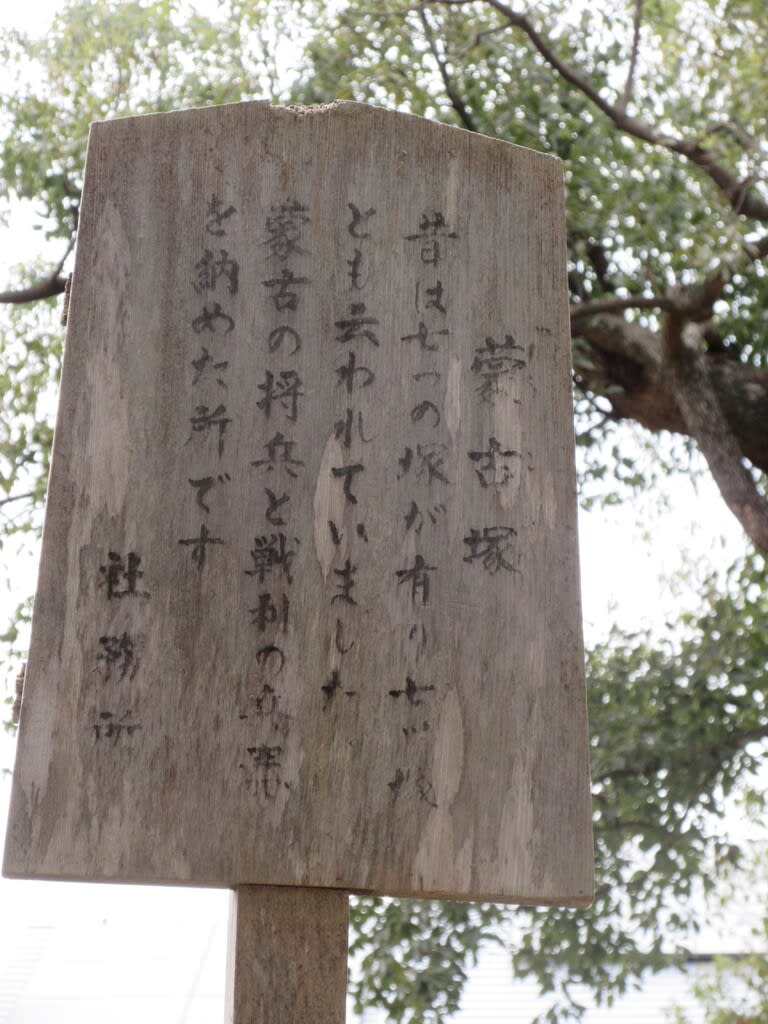 蒙古塚
昔は七つの塚が有り七ッ塚
とも云われていました。
蒙古の将兵と戦利の兵器
を納めた所です
社務所